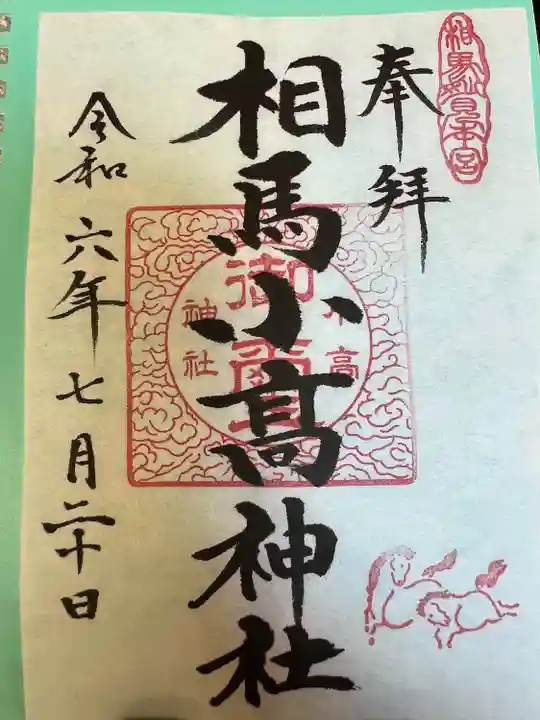 相馬妙見本宮
奉拝
相馬小高神社
小高
御璽
神社
令和六年七月二十日